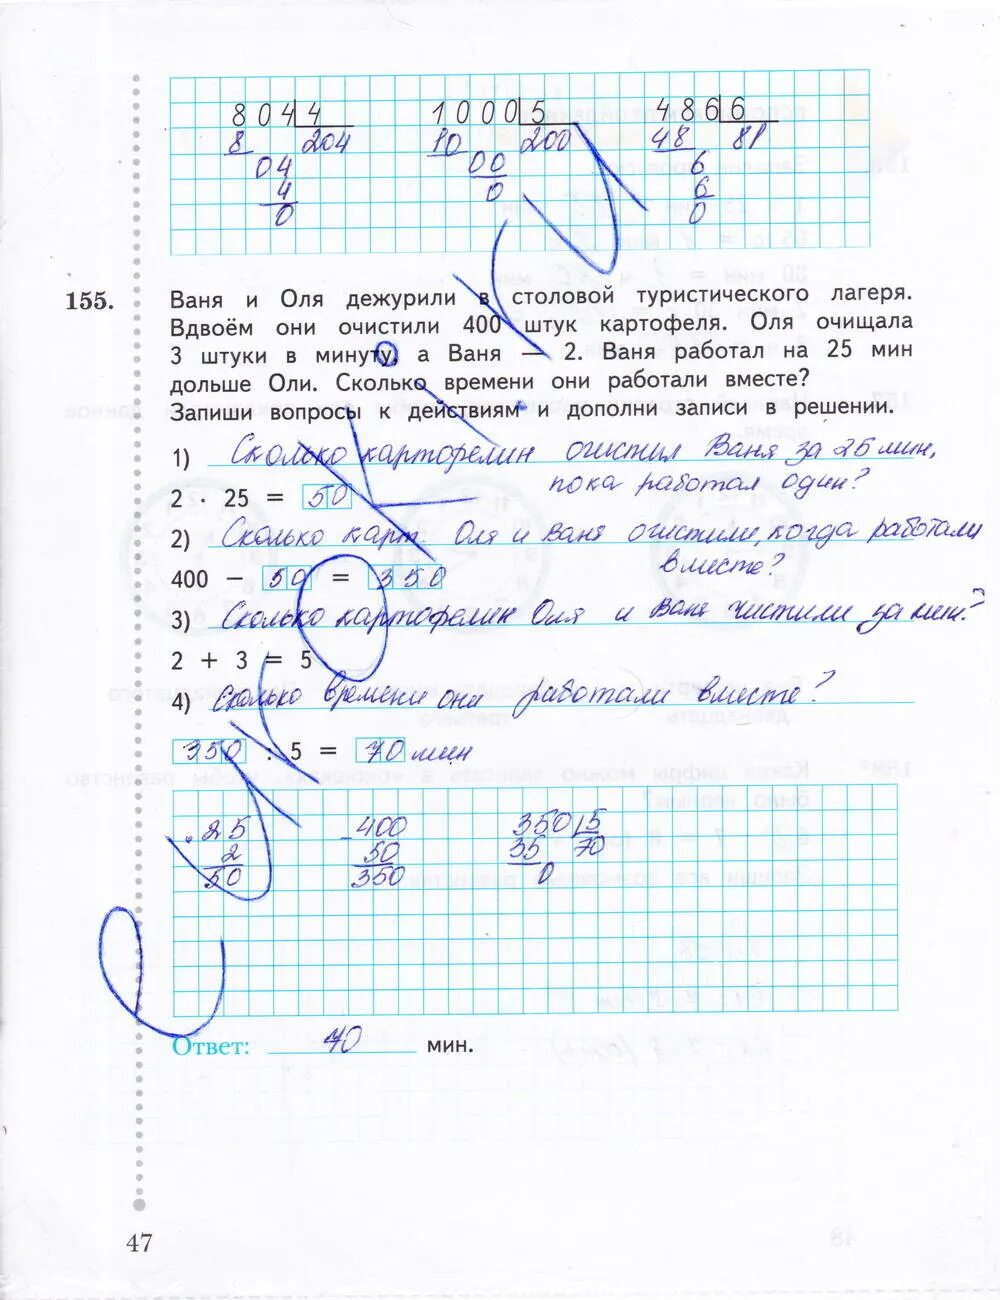 804 4 1000 5 486 6
8 204 10 200 48 81
04 00 6
4 0 6
0 0
155. Ваня и Оля дежурили в столовой туристического лагеря.
Вдвоём они очистили 400 штук картофеля. Оля очищала
3 штуки в минуту, а Ваня — 2. Ваня работал на 25 мин
дольше Оли. Сколько времени они работали вместе?
Запиши вопросы к действиям и дополни записи в решении.
1) Сколько картофелин очистил Ваня за 25 мин,
пока работал один?
2 · 25 = 50
2) Сколько карт. Оля и Ваня очистили, когда работали
вместе?
400 − 50 = 350
3) Сколько картофелин Оля и Ваня чистили за мин.?
2 + 3 = 5
4) Сколько времени они работали вместе?
350 : 5 = 70 мин
25 -400 350 5
2 50 35 70
50 350 0
Ответ: 70 мин.
47